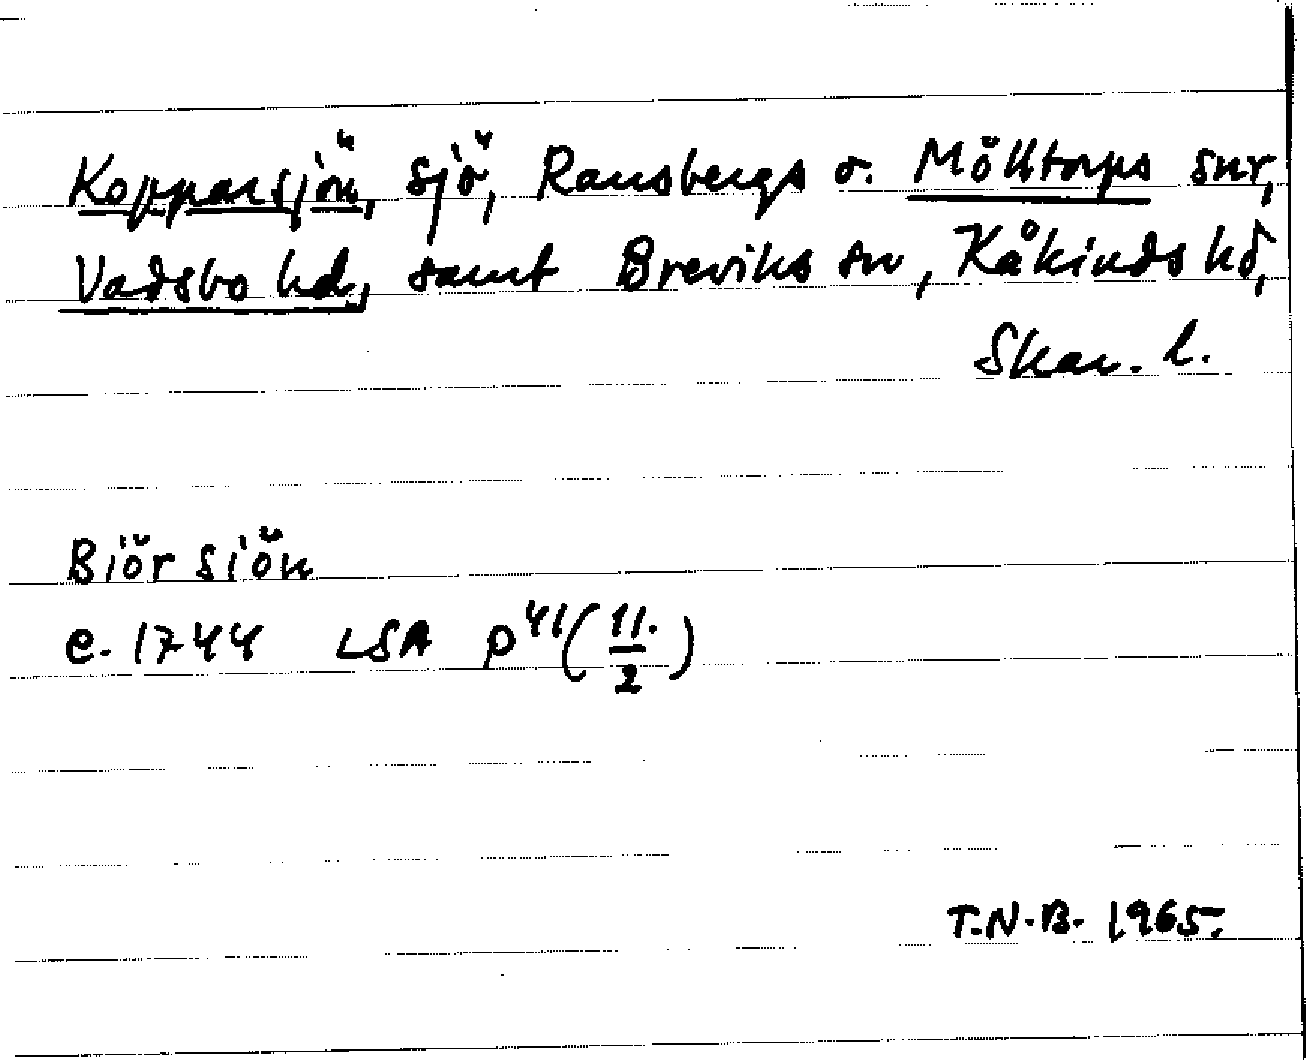 Kopparsjön, sjö, Ransbergs o. Mölltorps snr,
Vadsbo hd, samt Breviks sn, Kåkinds hd,
Skar. l.
Biör siön
e. 1744 LSA P 41 (11./2)
T.N.B. 1965.